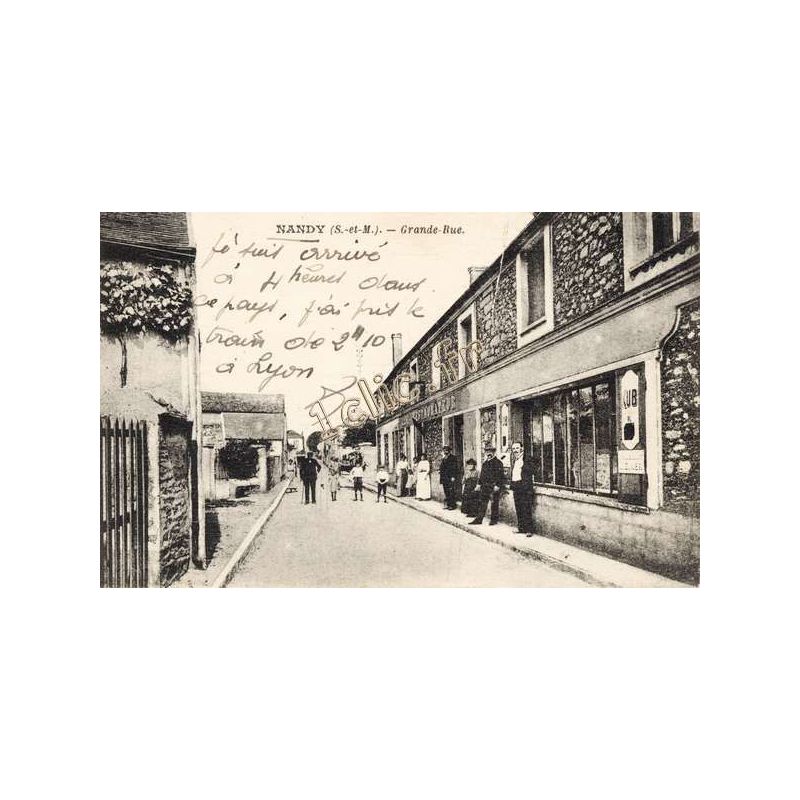 NANDY (S.-et-M.). — Grande-Rue.
Je suis arrivé
à 4 heures dans
ce pays, j'ai pris le
train de 2h10
à Lyon
1clic1.fr
KUB